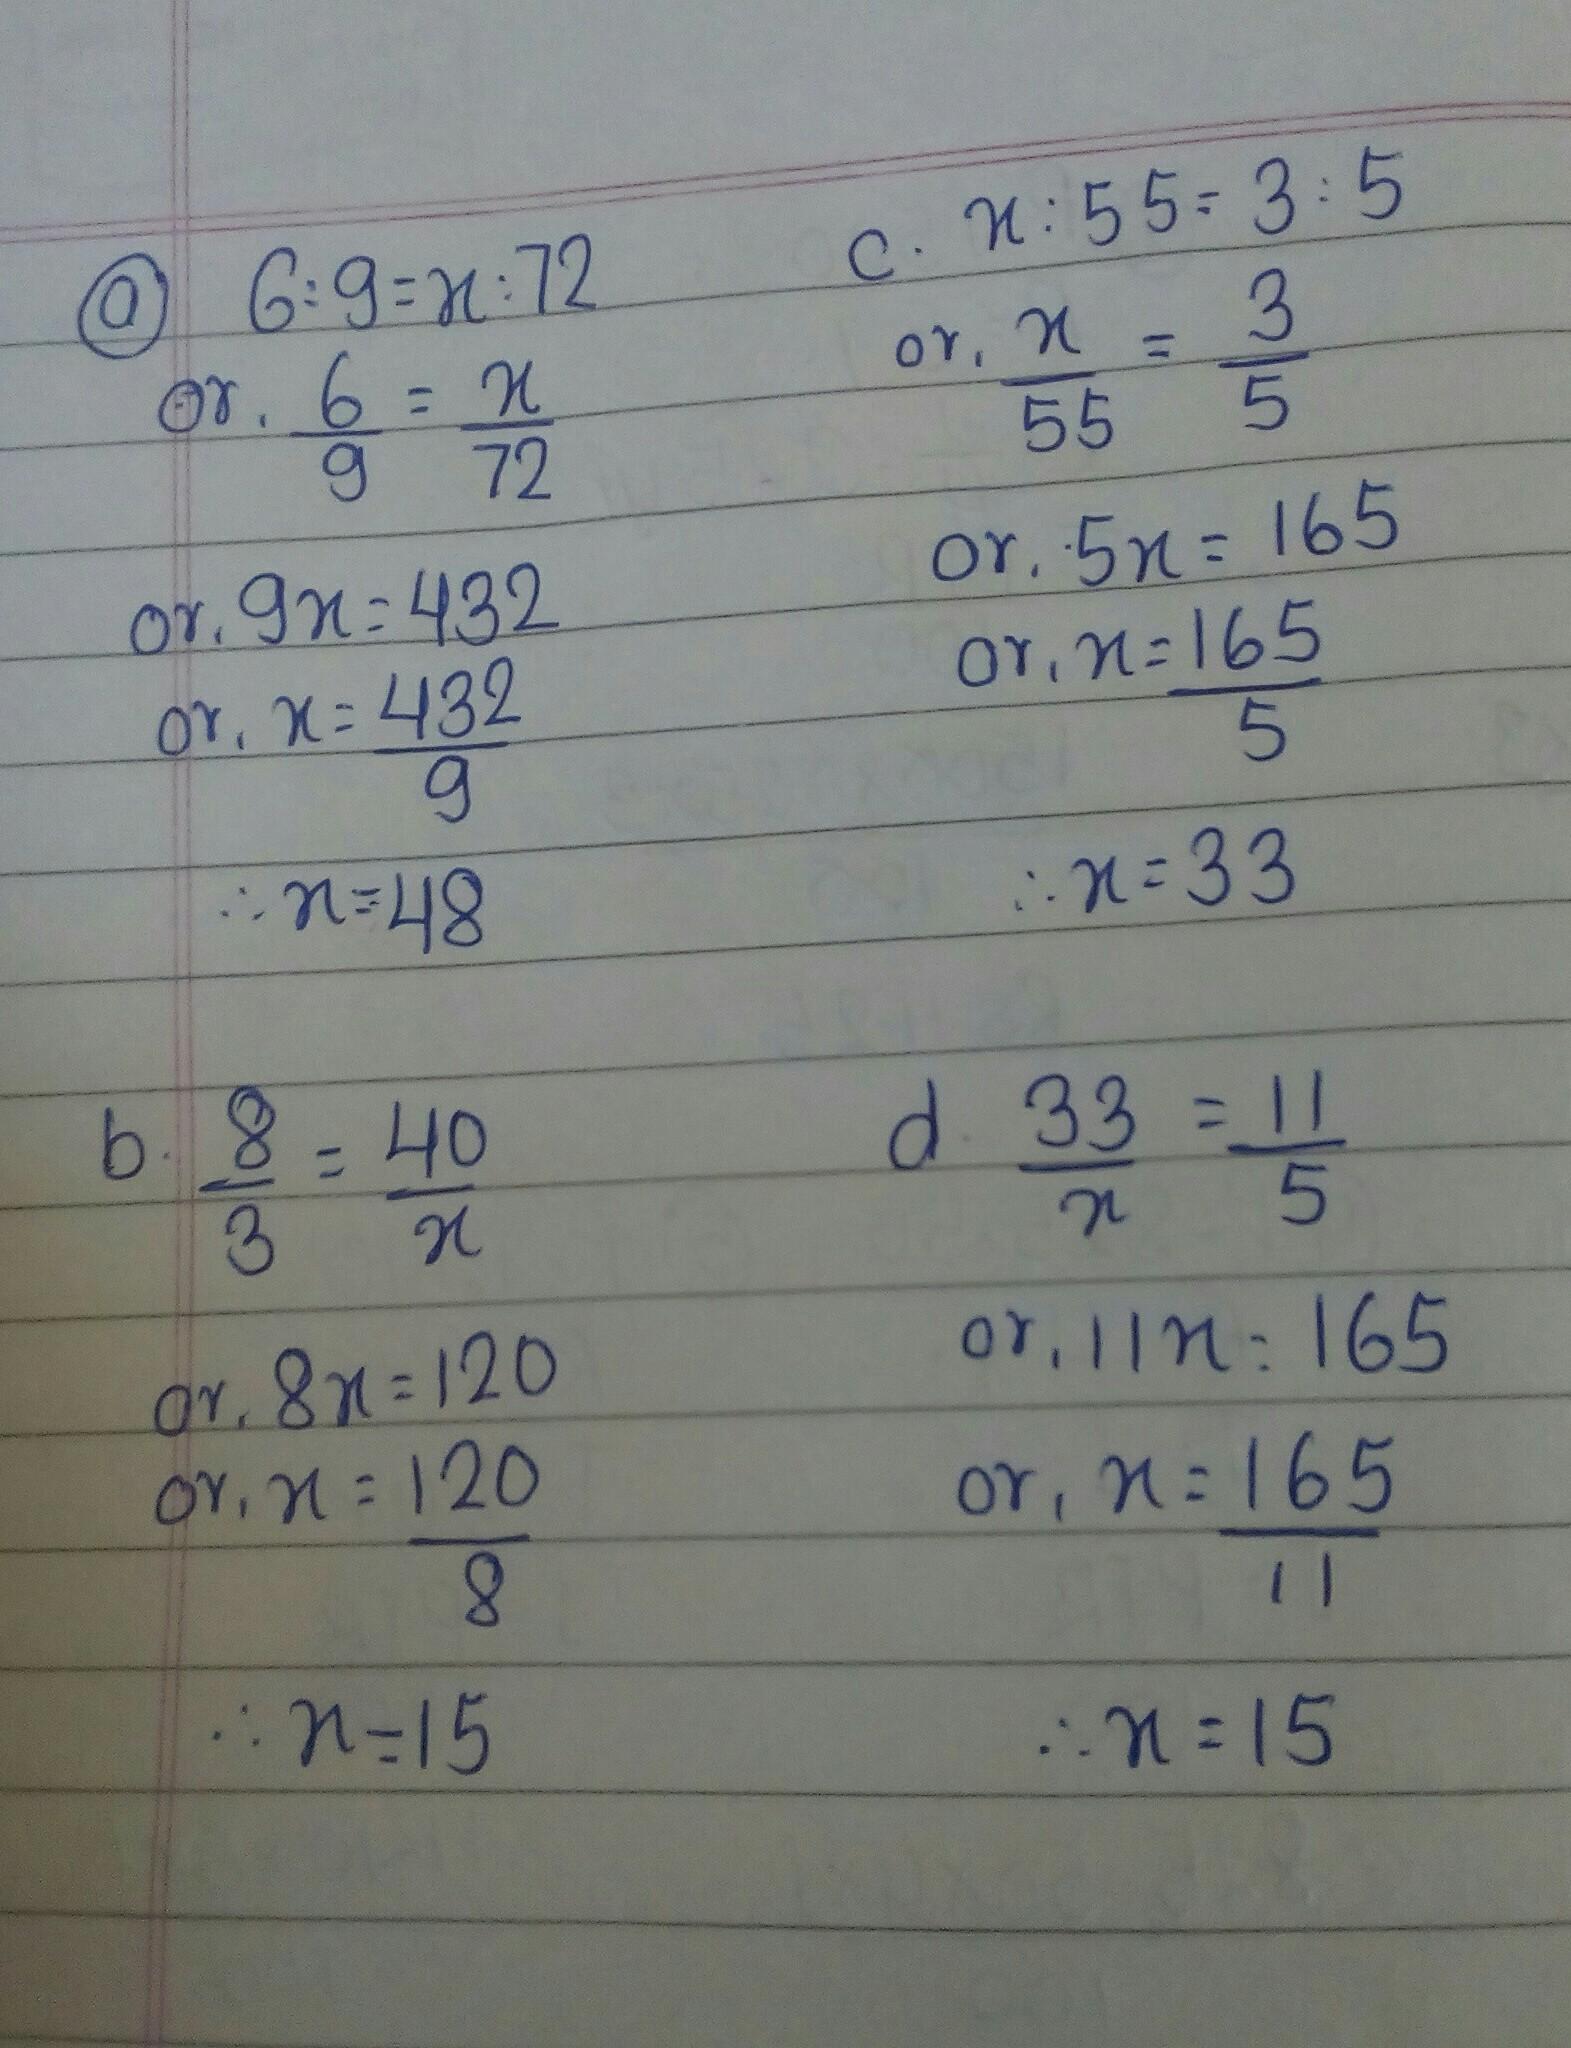 a 6:9=x:72
or. 6/9 = x/72
or. 9x=432
or. x=432/9
∴ x=48
b. 8/3 = 40/x
or. 8x=120
or. x=120/8
∴ x=15
c. x:55=3:5
or. x/55 = 3/5
or. 5x=165
or. x=165/5
∴ x=33
d. 33/x = 11/5
or. 11x=165
or. x=165/11
∴ x=15